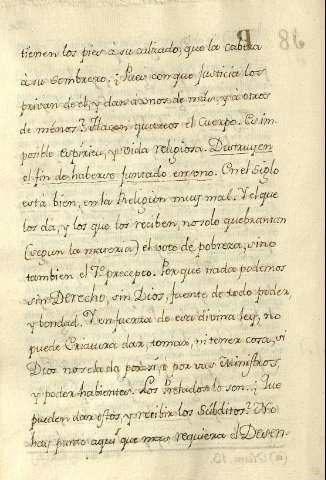 tienen los pies à su calzado, que la cabeza
à su sombrero. ¿Pues con que Justicia los
privan de el, y dan a unos de más, y à otros
de menos? Hazen queixoso el Cuerpo. Es im-
posible espiritu, y vida religiosa. Destruyen
el fin de haberse juntado en uno. En el Siglo
está bien, en la Religión muy mal. Y el que
los dà, y los que los reciben, no solo quebrantan
(segun la materia) el voto de pobreza, sino
tambien el 7º precepto. Por que nada podemos
sin Derecho, sin Dios, fuente de todo poder,
y bondad. Y en fuerza de esa divina ley, no
puede Criatura dar, tomar, ni tener cosa, si
Dios no se la dà por sí, o por sus Ministros,
y poder habientes. Los Prelados lo son. ¿Que
pueden dar estos, y recibir los Súbditos? No
hay punto aqui que mas requiera el Desen-